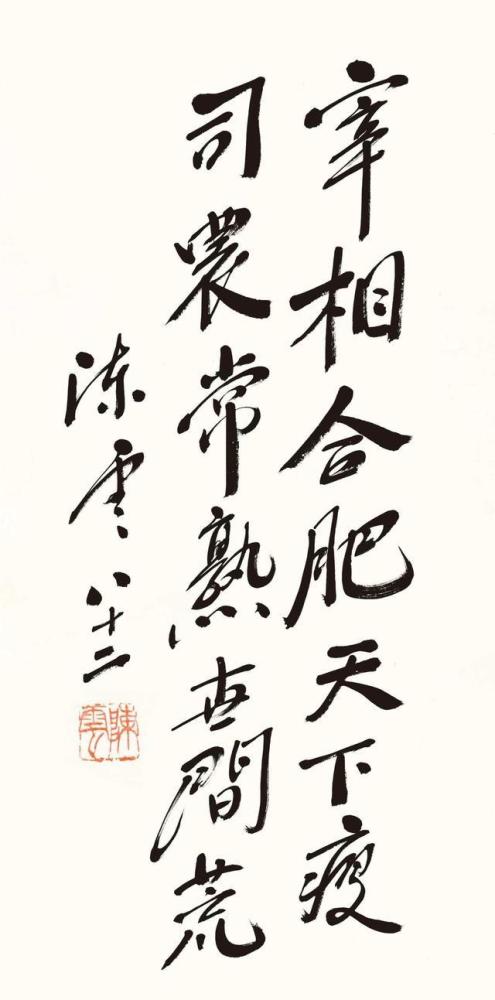 宰相合肥天下瘦
司農常熟世間荒
陳雲八十二
陳雲